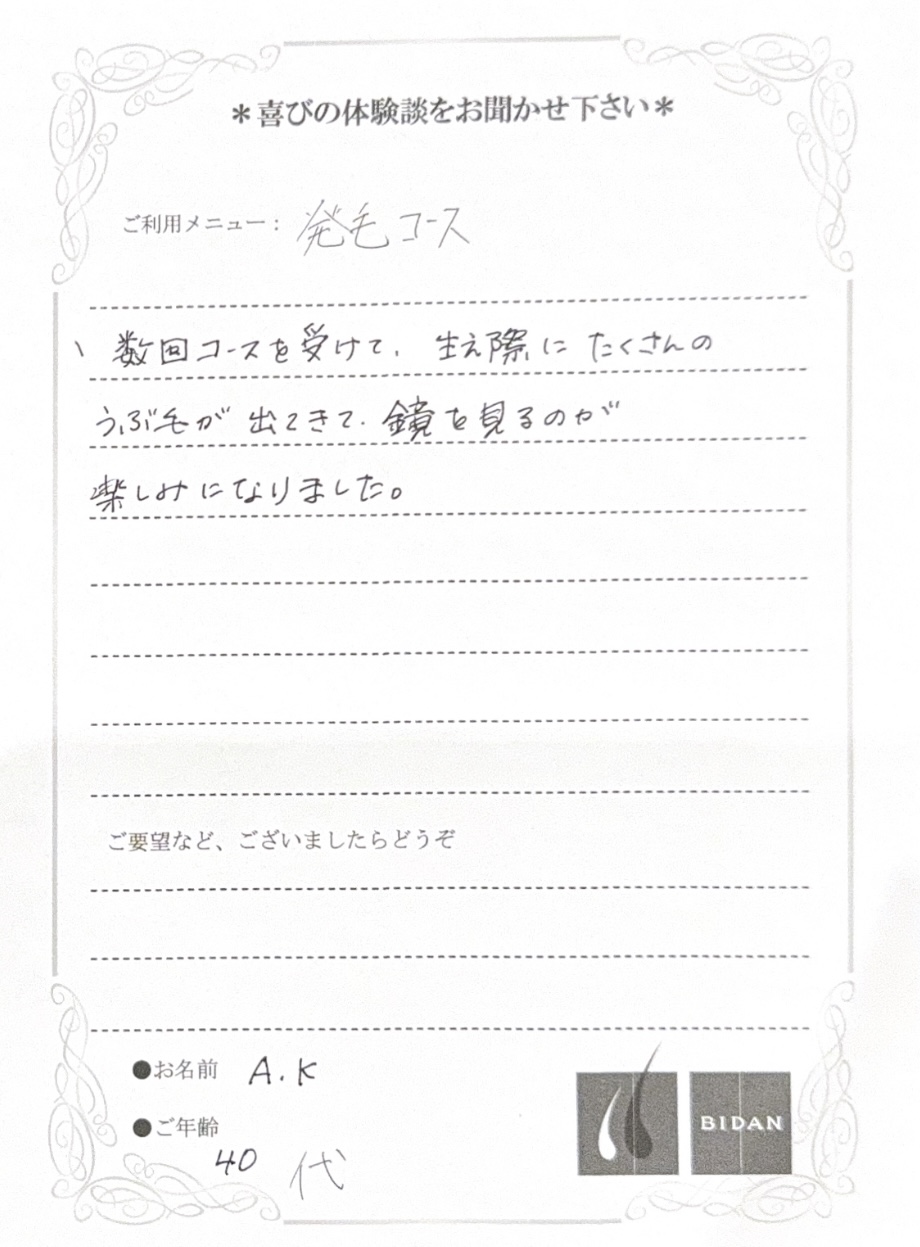 ＊喜びの体験談をお聞かせ下さい＊
ご利用メニュー： 発毛コース
、数回コースを受けて、生え際にたくさんの
うぶ毛が出てきて、鏡を見るのが
楽しみになりました。
ご要望など、ございましたらどうぞ
●お名前 A.K
●ご年齢
40代
BIDAN